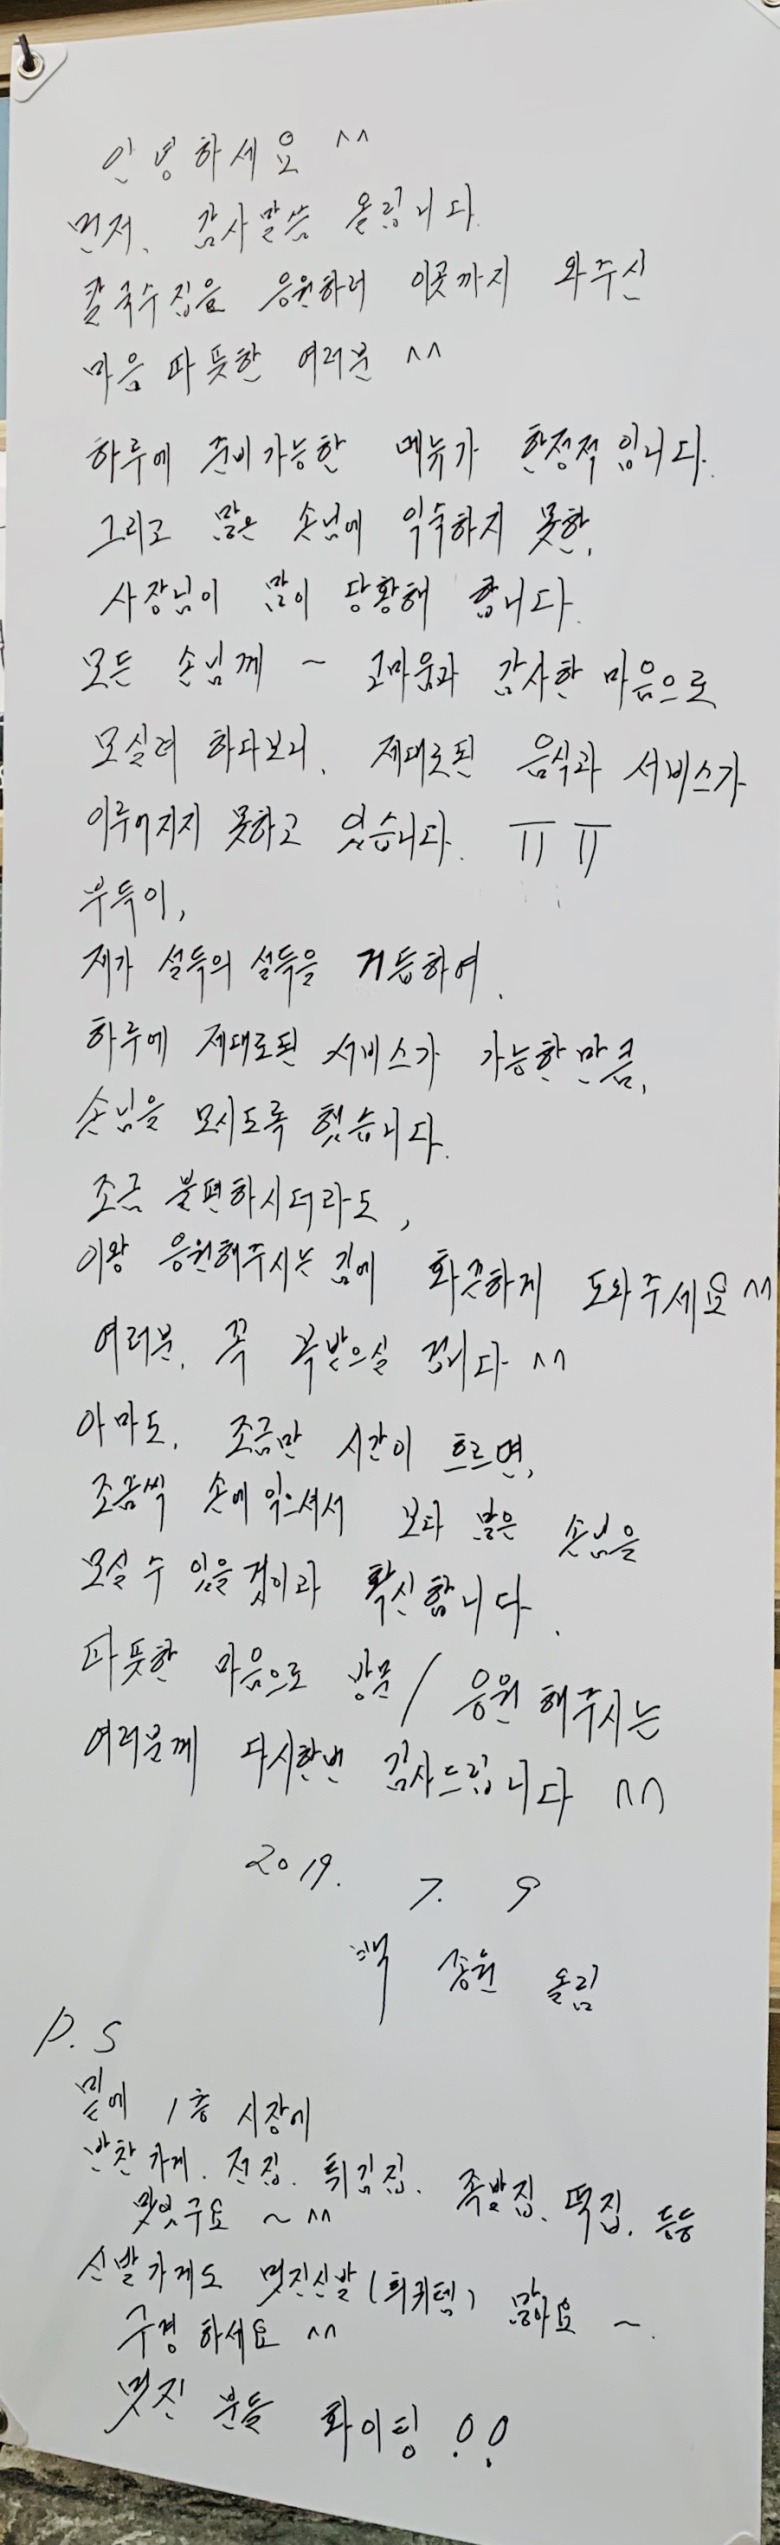 안녕하세요 ^^
먼저, 감사말씀 올립니다.
칼국수집을 응원하러 이곳까지 와주신
마음 따뜻한 여러분 ^^
하루에 준비가능한 메뉴가 한정적입니다.
그리고 많은 손님에 익숙하지 못한,
사장님이 많이 당황해 합니다.
모든 손님께 ~ 고마움과 감사한 마음으로
모실려 하다보니, 제대로된 음식과 서비스가
이루어지지 못하고 있습니다. ㅠㅠ
부득이,
제가 설득의 설득을 거듭하여,
하루에 제대로된 서비스가 가능한 만큼,
손님을 모시도록 했습니다.
조금 불편하시더라도,
이왕 응원해주시는 김에 화끈하게 도와주세요 ^^
여러분, 꼭 복받으실 겁니다 ^^
아마도, 조금만 시간이 흐르면,
조금씩 손에 익으셔서 보다 많은 손님을
모실 수 있을것이라 확신합니다.
따뜻한 마음으로 방문/응원 해주시는
여러분께 다시한번 감사드립니다 ^^
2019. 7. 9
백종원 올림
P.S
밑에 1층 시장에
반찬가게. 전집. 튀김집. 족발집. 떡집. 등등
맛있구요 ~ ^^
신발가게도 멋진신발(희귀템) 많아요 ~.
구경하세요 ^^
멋진 분들 화이팅!!